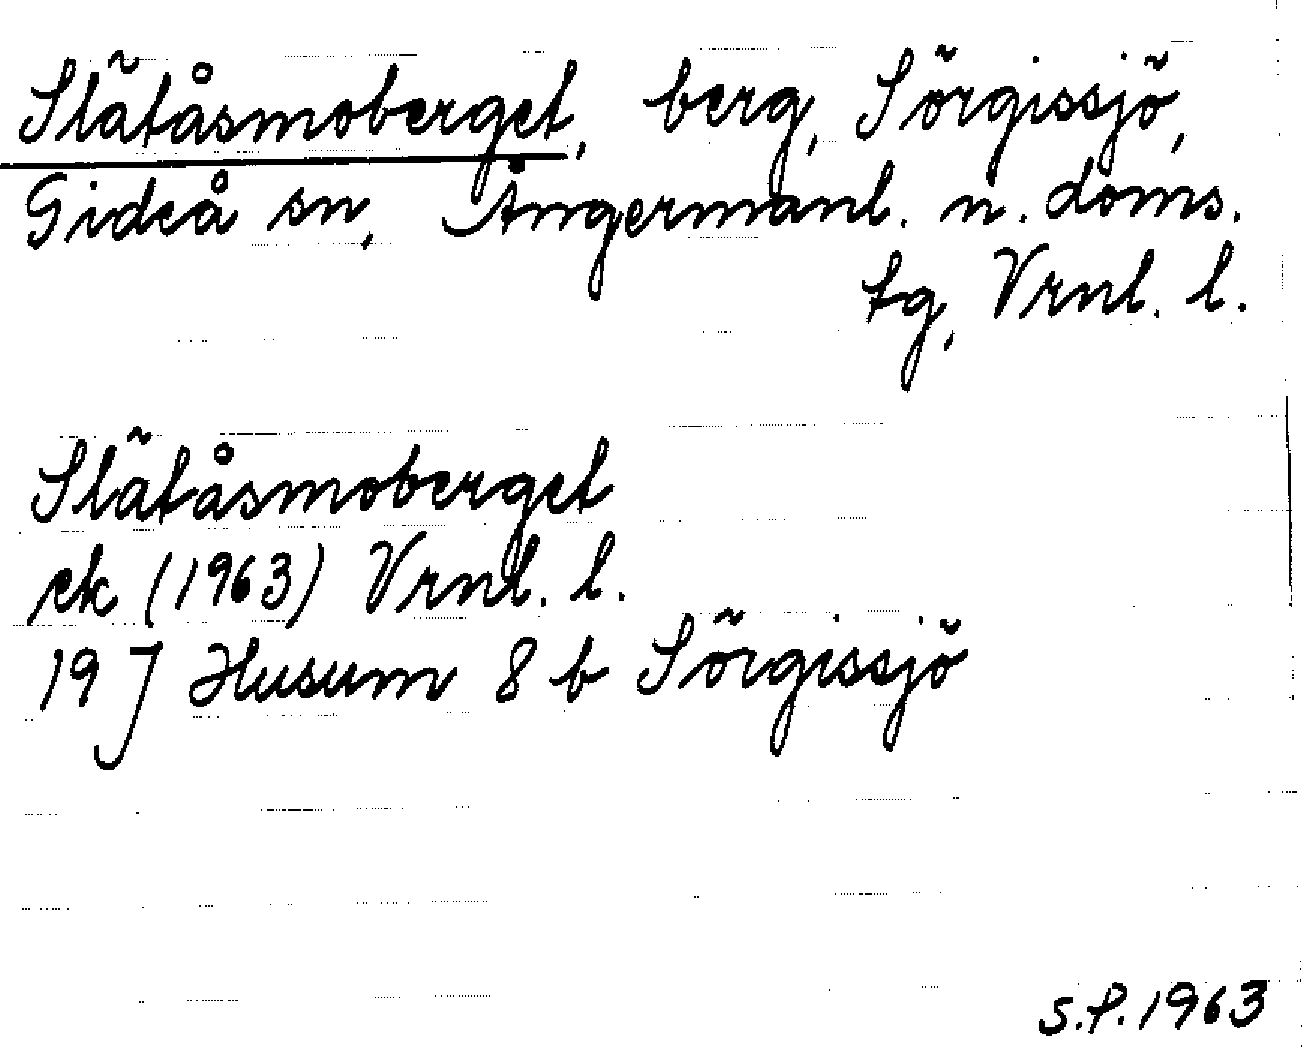 Slätåsmoberget, berg, Sörgissjö,
Gideå sn, Ångermanl. n. doms.
tg, Vrnl. l.
Slätåsmoberget
ek (1963) Vrnl. l.
19 J Husum 8 b Sörgissjö
S.P. 1963